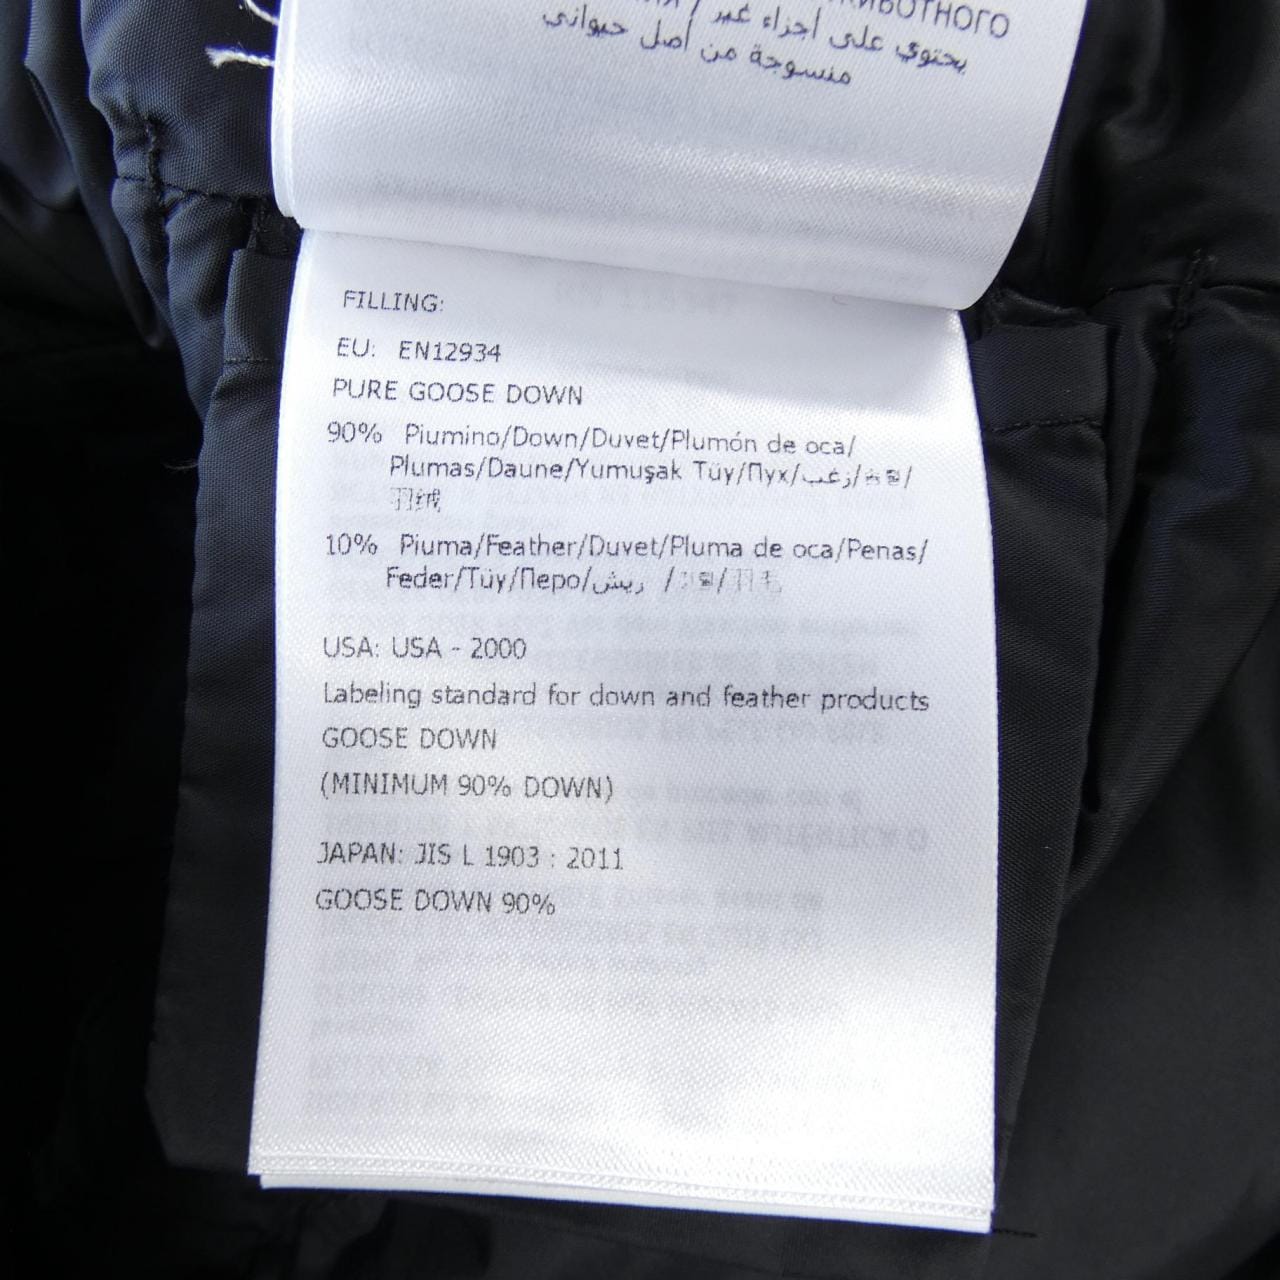 يحتوي على أجزاء غير
منسوجة من أصل حيواني
FILLING:
EU: EN12934
PURE GOOSE DOWN
90% Piumino/Down/Duvet/Plumón de oca/
Plumas/Daune/Yumuşak Tüy/Пух/زغب/
羽绒
10% Piuma/Feather/Duvet/Pluma de oca/Penas/
Feder/Tüy/Перо/ريش /羽毛
USA: USA - 2000
Labeling standard for down and feather products
GOOSE DOWN
(MINIMUM 90% DOWN)
JAPAN: JIS L 1903 : 2011
GOOSE DOWN 90%